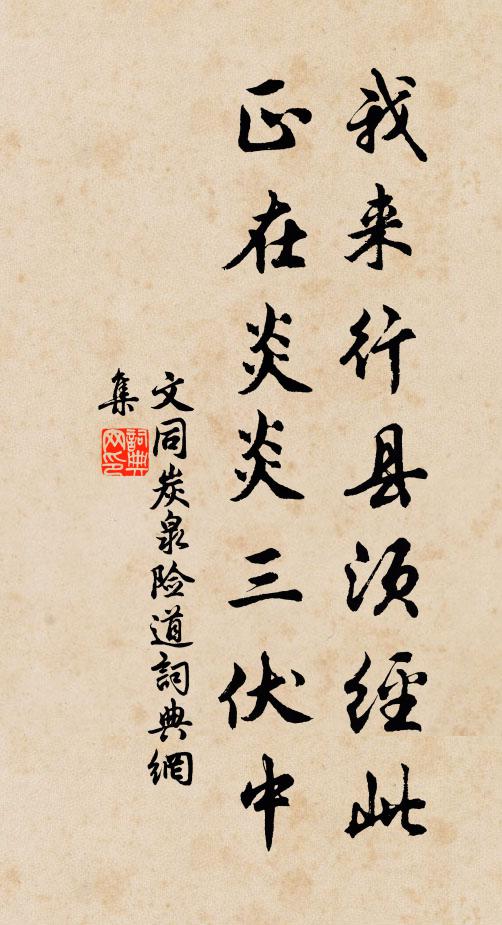 我来行县须经此
正在炎炎三伏中
文同炭泉险道詞典網
集
詞典
网印